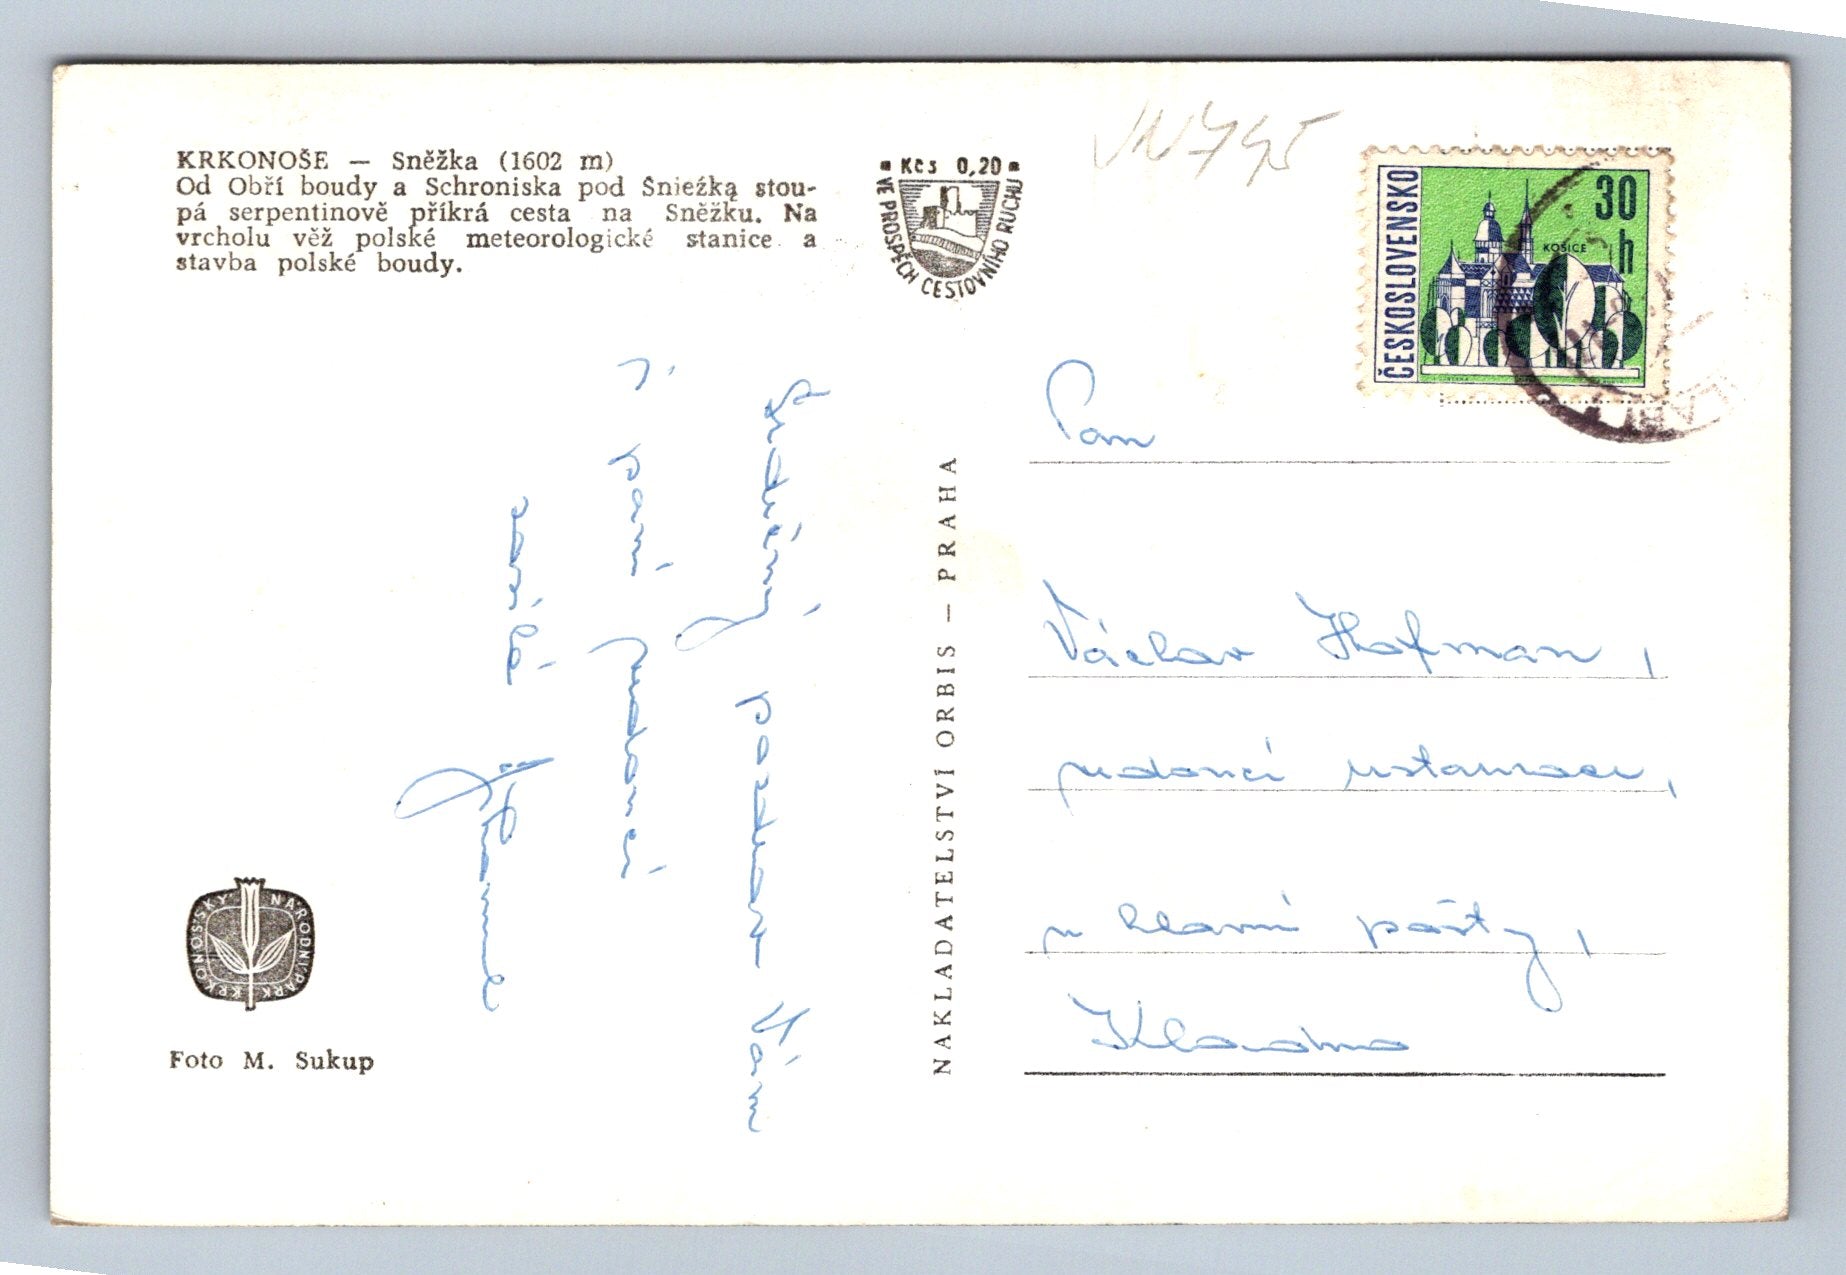 KRKONOŠE — Sněžka (1602 m)
Od Obří boudy a Schroniska pod Śnieżką stou-
pá serpentinově příkrá cesta na Sněžku. Na
vrcholu věž polské meteorologické stanice a
stavba polské boudy.
Kčs 0,20
VE PROSPĚCH CESTOVNÍHO RUCHU
ČESKOSLOVENSKO
30
h
KOŠICE
Srdečný pozdrav Vám
i paní vedoucí
zasílá
NAKLADATELSTVÍ ORBIS — PRAHA
Pan
Václav Hofman,
vedoucí restaurace,
u hlavní pošty,
Kladno
KRKONOŠSKÝ NÁRODNÍ PARK
Foto M. Sukup